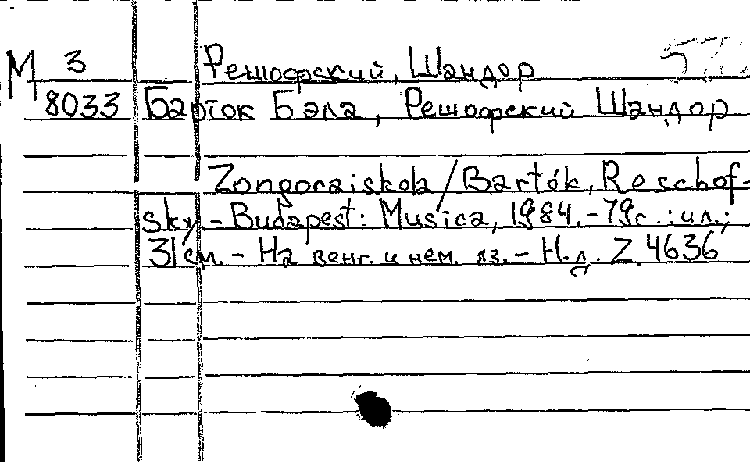 М 3 Решофский, Шандор
8033 Барток Бэла, Решофский Шандор
Zongoraiskola / Bartók, Reschof-
sky – Budapest: Musica, 1984. – 79с.: ил.;
31см. – На венг. и нем. яз. – Н.д. Z. 4636